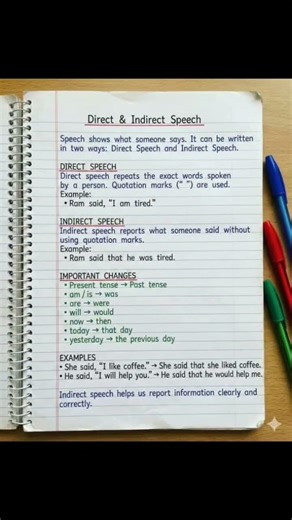 Direct & Indirect Speech
Speech shows what someone says. It can be written
in two ways: Direct Speech and Indirect Speech.
DIRECT SPEECH
Direct speech repeats the exact words spoken
by a person. Quotation marks (“ ”) are used.
Example:
• Ram said, “I am tired.”
INDIRECT SPEECH
Indirect speech reports what someone said without
using quotation marks.
Example:
• Ram said that he was tired.
IMPORTANT CHANGES
• Present tense → Past tense
• am / is → was
• are → were
• will → would
• now → then
• today → that day
• yesterday → the previous day
EXAMPLES
• She said, “I like coffee.” → She said that she liked coffee.
• He said, “I will help you.” → He said that he would help me.
Indirect speech helps us report information clearly and
correctly.